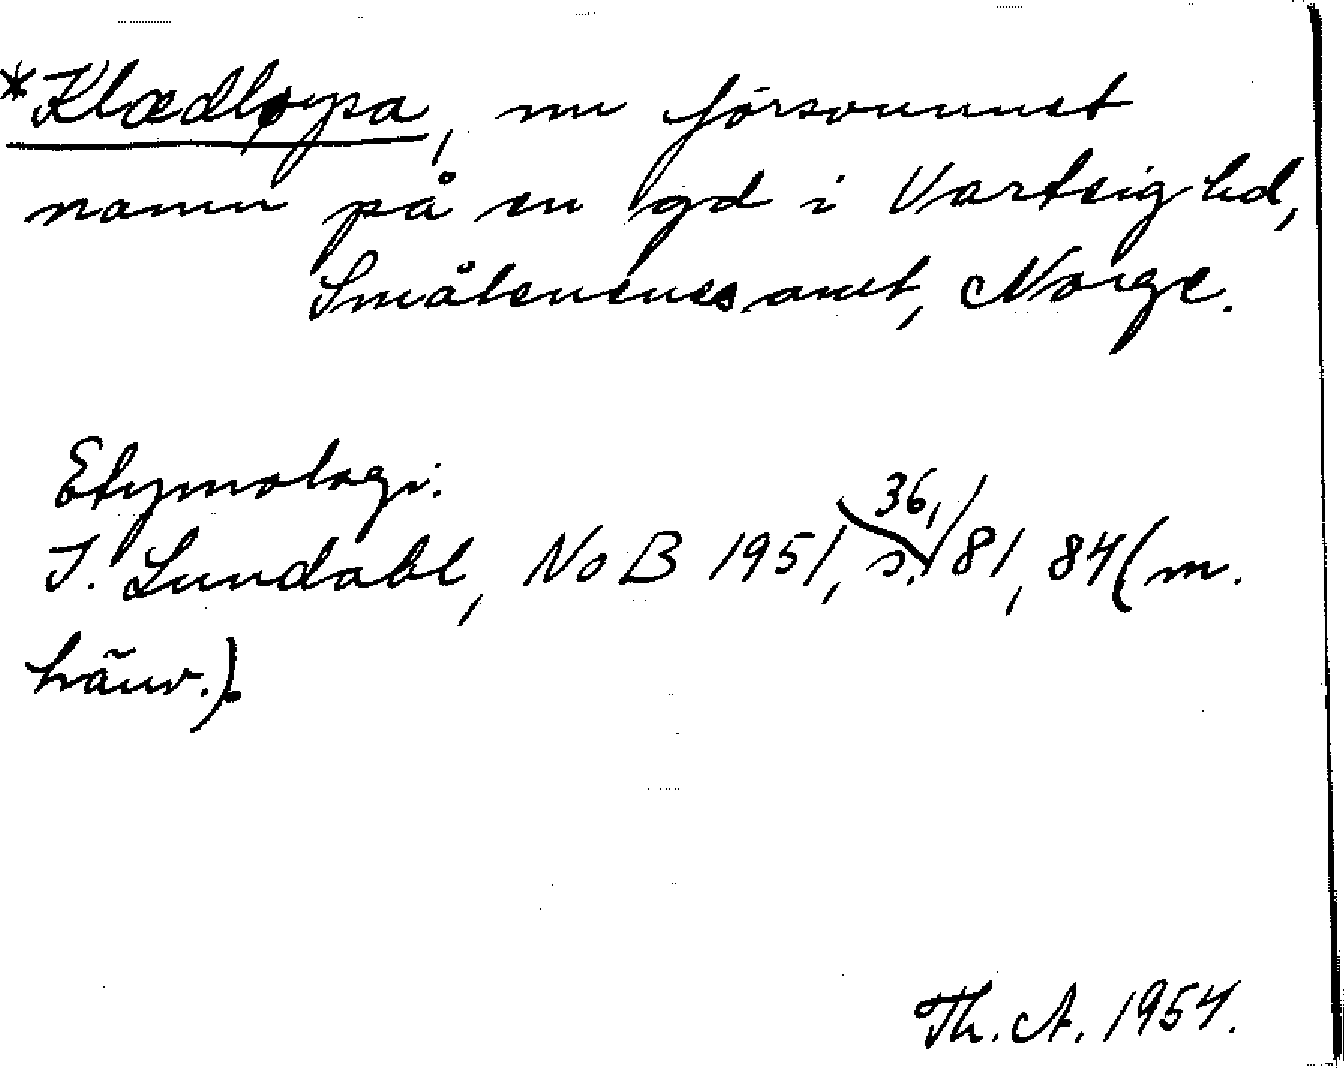 *Klædløypa, nu försvunnet
namn på en gd i Varteig hd,
Smålenenes amt, Norge.
Etymologi:
I. Lundahl, NoB 1951, 36, s. 81, 84 (m.
hänv.).
Th. A. 1954.